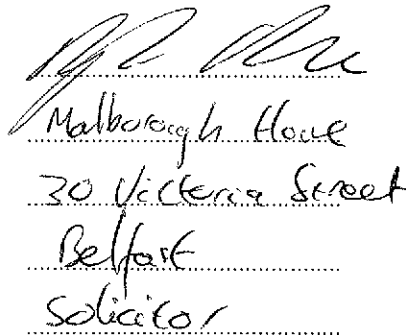 Malborough House
30 Victoria Street
Belfast
Solicitor